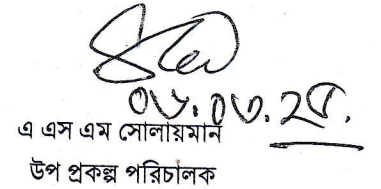 ০৬.০৩.২৫.
এ এস এম সোলায়মান
উপ প্রকল্প পরিচালক